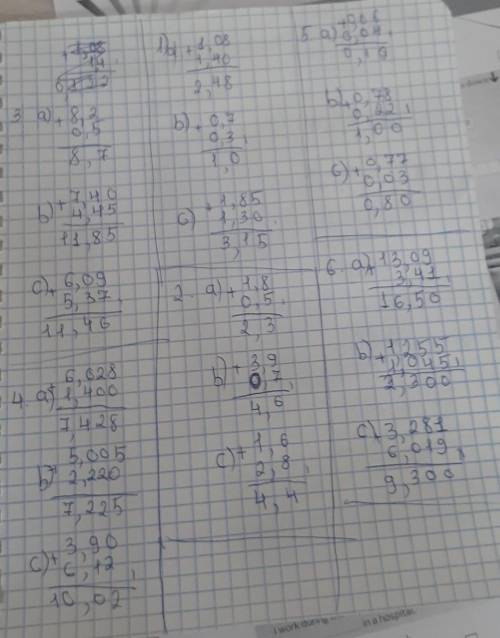 1) a) + 1,08
1,40
2,48
b) + 0,7
0,3
1,0
c) + 1,85
1,30
3,15
2. a) + 1,8
0,5
2,3
b) + 3,9
0,7
4,6
c) + 1,6
2,8
4,4
3 a) + 8,2
0,5
8,7
b) + 7,40
4,45
11,85
c) + 6,09
5,37
11,46
4. a) + 6,028
1,400
7,428
b) + 5,005
2,220
7,225
c) + 3,90
6,12
10,02
5 a) + 0,06
0,04
0,10
b) + 0,78
0,22
1,00
c) + 0,77
0,03
0,80
6. a) + 13,09
3,41
16,50
b) + 1,255
1,045
2,300
c) + 3,281
6,019
9,300
in a hospital